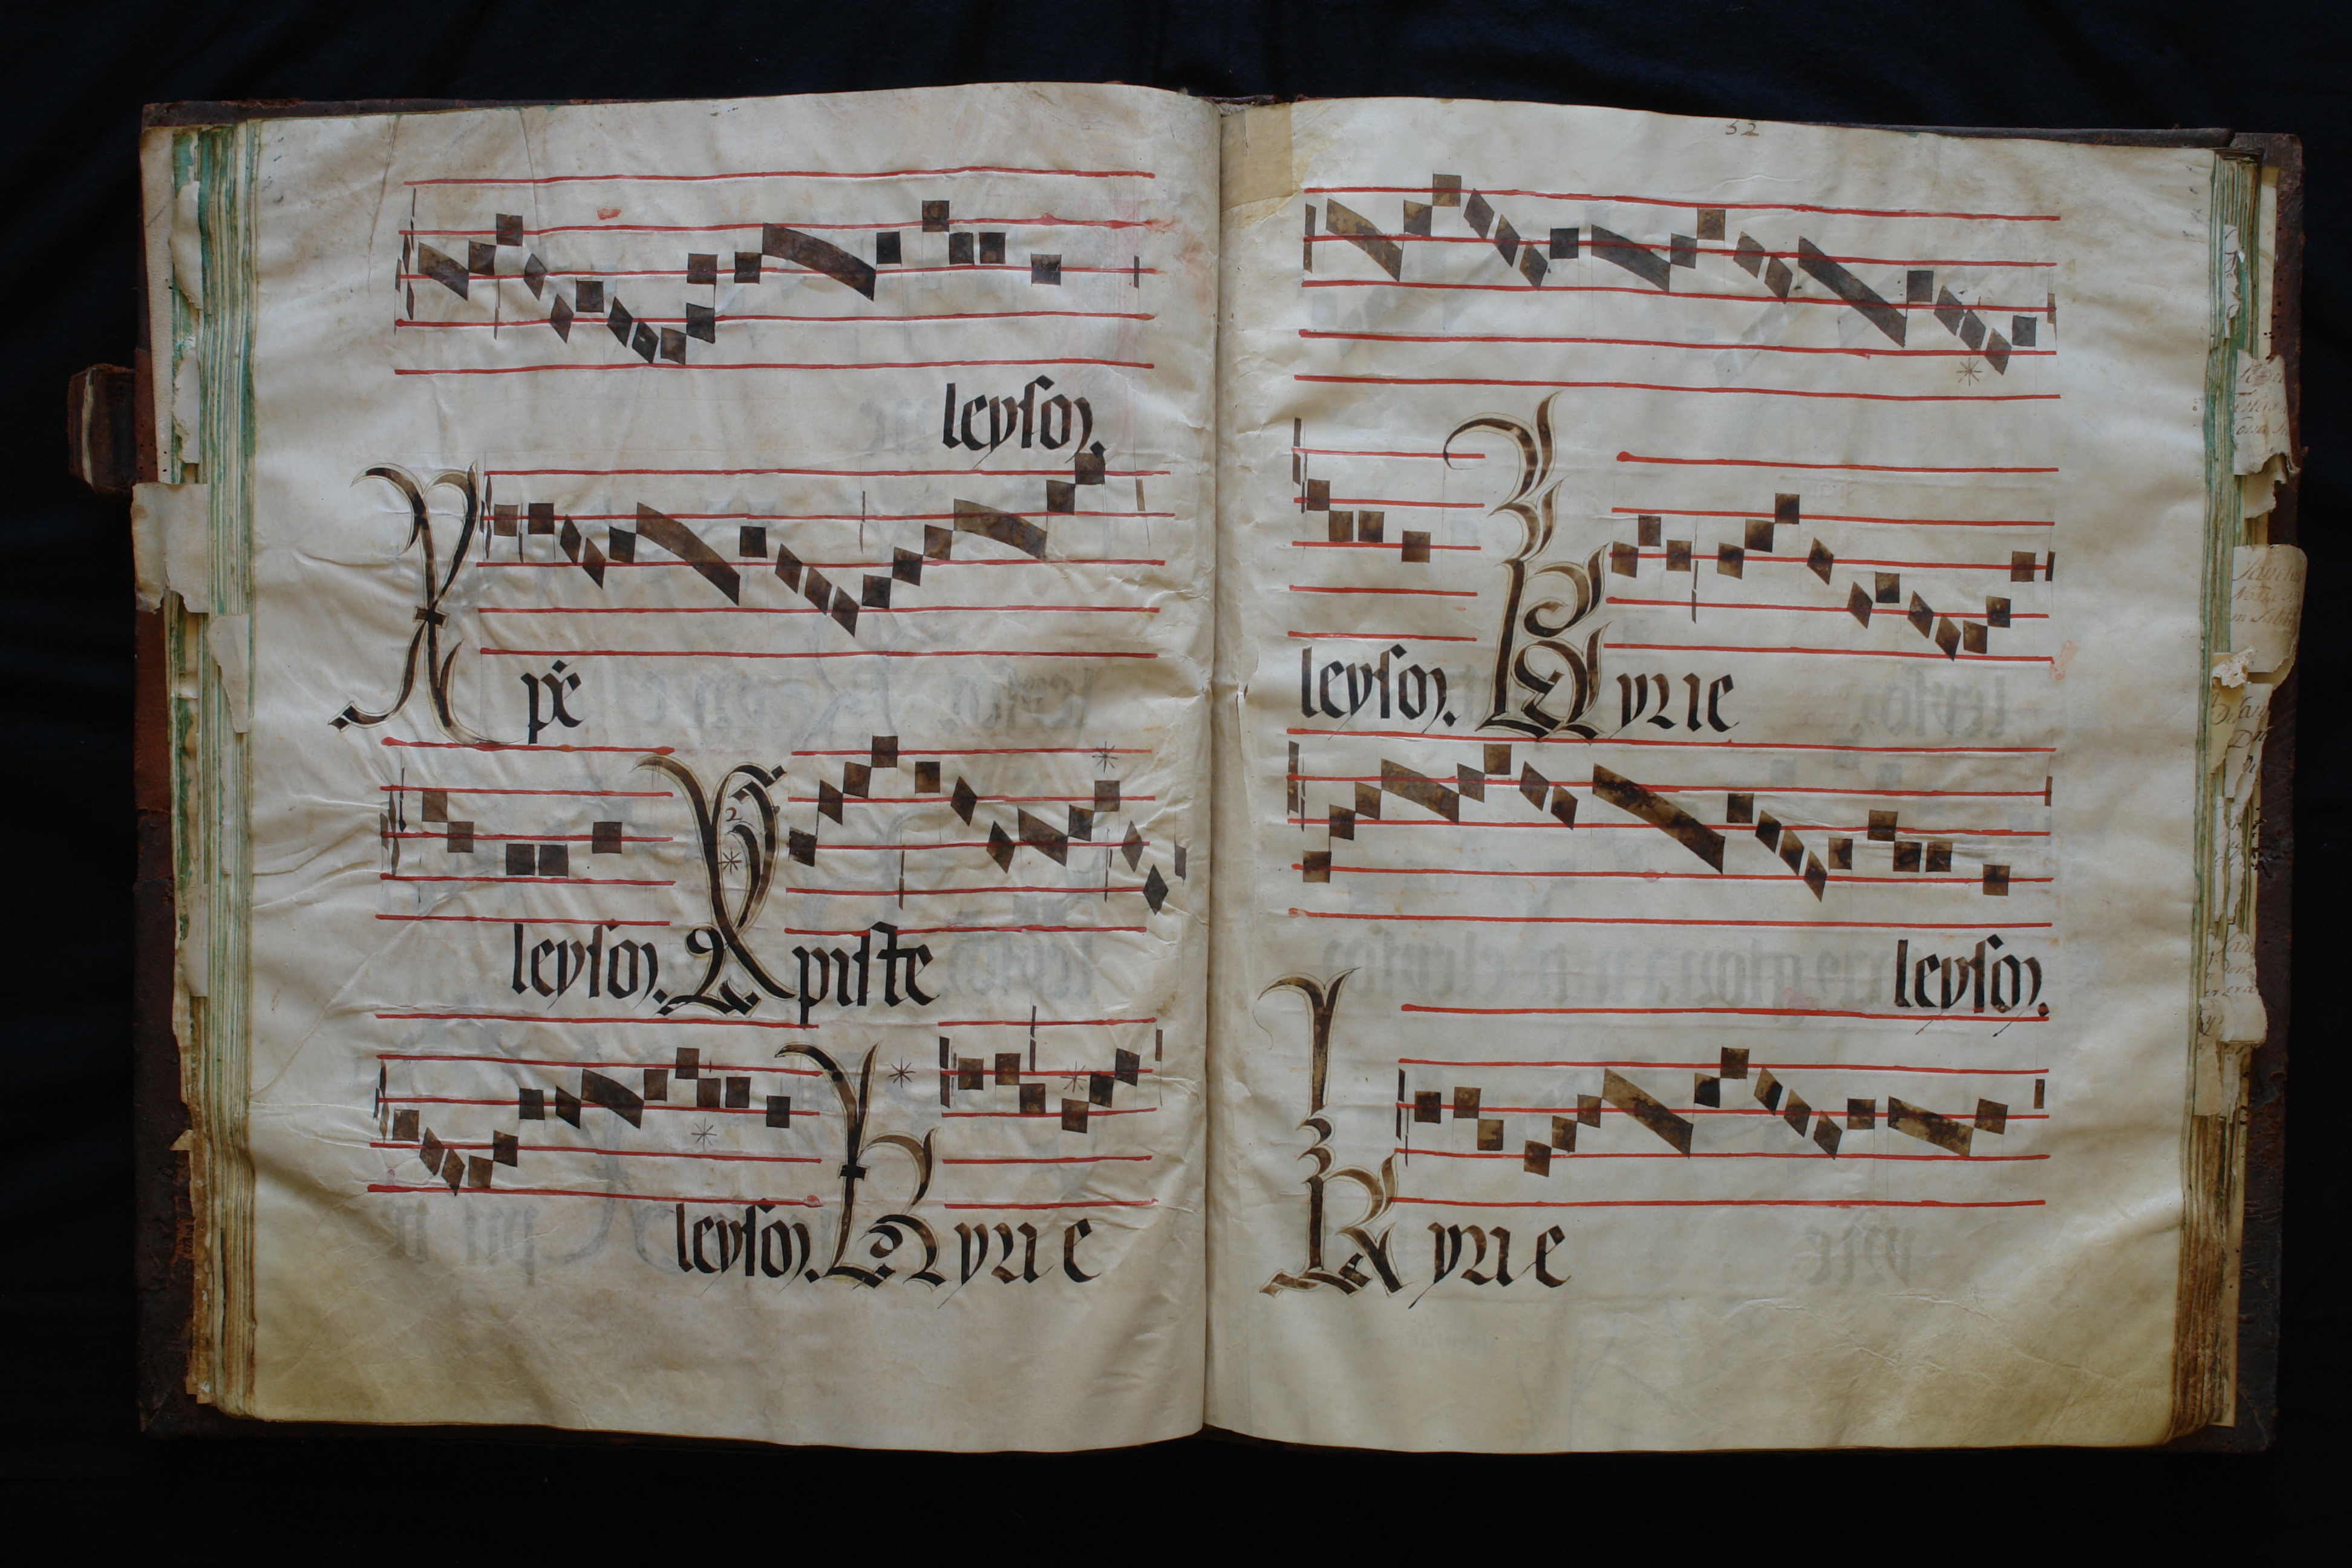 leyson.
Xpē
leyson. Xpiste
leyson. Kyrie
52
leyson. Kyrie
leyson.
Kyrie